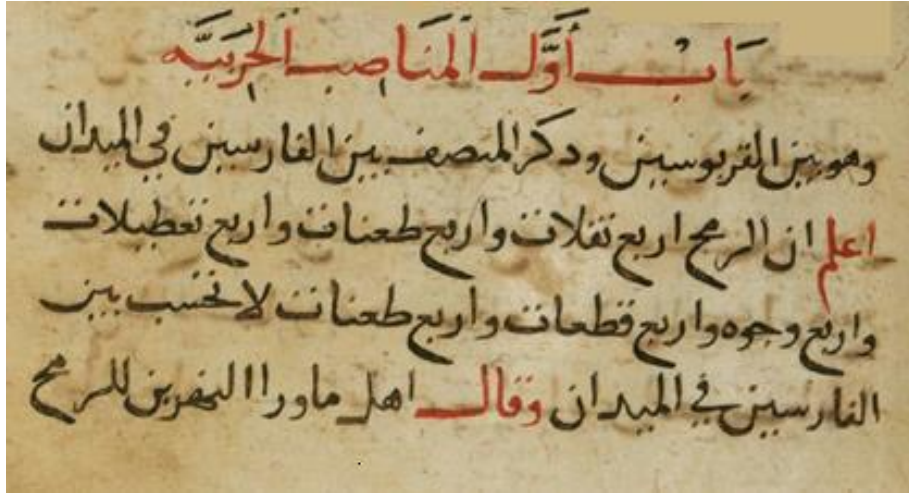 باب أوَّل المنَاصب الحربيَّه
وهو بين القربوسين وذكر المنصف بين الفارسين في الميدان
اعلم ان الرمح اربع نقلات واربع طعنات واربع تعطيلات
واربع وجوه واربع قطعات واربع طعنات لا تحسب بين
الفارسين في الميدان وقال اهل ماورا النهرين للرمح